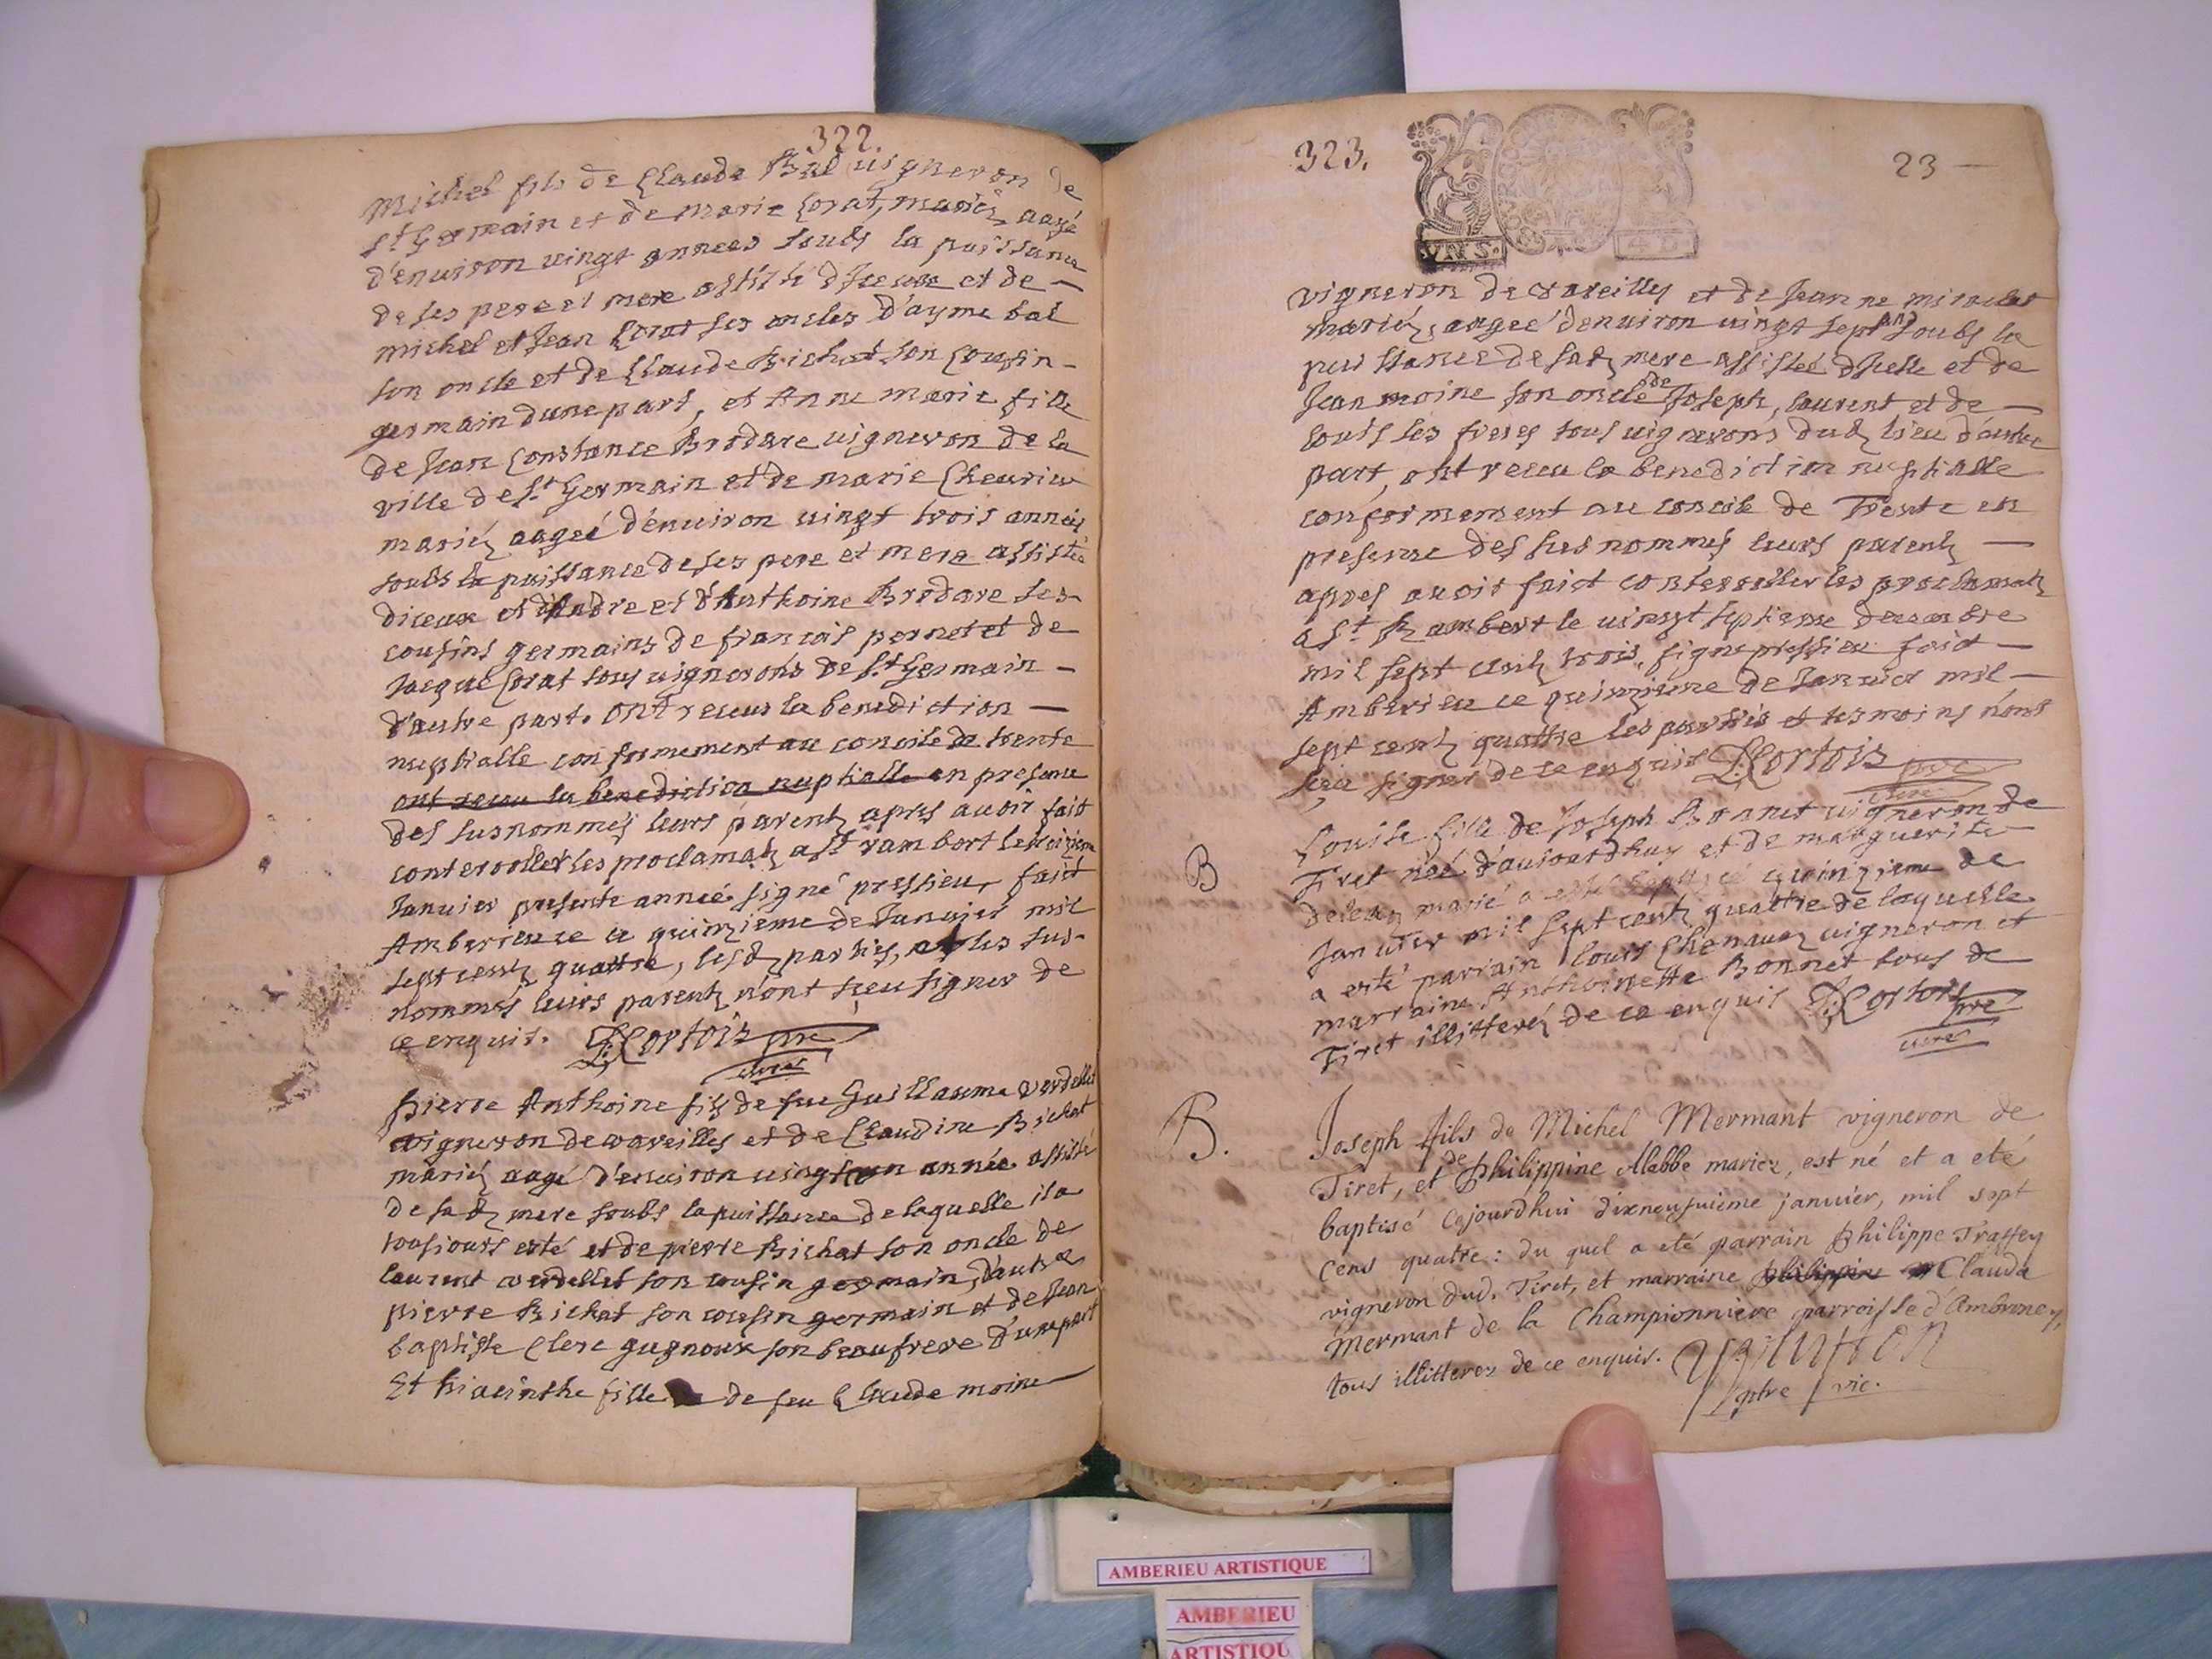 322.
Michel fils de Claude Bal vigneron de
St Germain et de marie Corat, mariéz aagé
d'enuiron uingt annees soubs la puissance
de ses pere et mere assisté d'Iceux et de
michel et Jean Corat ses oncles d'ayme bal
son oncle et de Claude Bichat son cousin
germain dune part, et Anne marie fille
de Jean Constance Brodare uigneron de la
ville de St Germain et de marie Cheurier
mariéz aageé d'enuiron uingt trois années
soubs la puissance de ses pere et mere assistée
diceux et d'Andre et d'Anthoine Brodare ses
cousins germains de francois pernet et de
Jacque Corat tous uignerons de St Germain
d'autre part. ont receus la benediction
nuptialle conformement au concile de trente
ont receu la benediction nuptialle en presence
des susnommés leurs parentz apres auoir fait
conterooller les proclamatz a St rambort le
Januier presente anneé signé pressieu, faict
Amberieu ce quinzieme de Januier mil
sept centz quattre, lesd. parties, et les sus-
nommés leurs parentz n'ont sceu signer de
ce enquis. Cortois pre
curé
pierre Anthoine filz de feu Guillaume Verdellet
vigneron de vareilles et de Claudine Bichat
mariéz aagé d'enuiron uingt un année assisté
de sad. mere soubs la puissance de laquelle il a
tousiours esté et de pierre Bichat son oncle de
laurent verdellet son cousin germain, d'autre
pierre Bichat son cousin germain et de Jean
baptiste Clerc gugnoux son beaufrere d'une part
Et hiacinthe fille de feu Claude moine
323.
23
VN S.
4 D.
vigneron de vareilles et de Jeanne miraclet
mariéz, aageé denuiron uingt sept ans soubs la
puissance de sad. mere assistée d'Icelle et de
Jean moine son oncle de Joseph, laurent et de
louis ses freres tous uignerons dud. lieu d'autre
part, ont receu la benediction nuptialle
conformement au concile de Trente en
presence des susnommés leurs parentz
apres auoir faict conterooller les proclamatz
a St Rambert le uingt septiesme decembre
mil sept centz trois, signé pressieu faict
Amberieu ce quinzieme de Januier mil
sept centz quattre les parties et tesmoins n'ont
sceu signer de ce enquis Cortois pre
curé
B
Louise fille de Joseph Bonnet uigneron de
Tiret neé d'auiourdhuy et de marguerite
marié a esté baptizeé quinzieme de
Januier mil sept centz quattre de laquelle
a esté parrain louis Chenauaz uigneron et
marraine Anthoinette Bonnet tous de
Tiret illitteréz de ce enquis Cortois pre
curé
B.
Joseph fils de Michel Mermant vigneron de
Tiret, et de Philippine Mabbe mariez, est né et a eté
baptisé cejourdhui dixneufuieme januier, mil sept
cens quatre: du quel a eté parrain Philippe Traffey
vigneron dud. Tiret, et marraine philippine Clauda
Mermant de la Championniere parroisse d'Ambroney,
tous illitterez de ce enquis.
ptre vic.
AMBERIEU ARTISTIQUE
AMBERIEU
ARTISTIQU